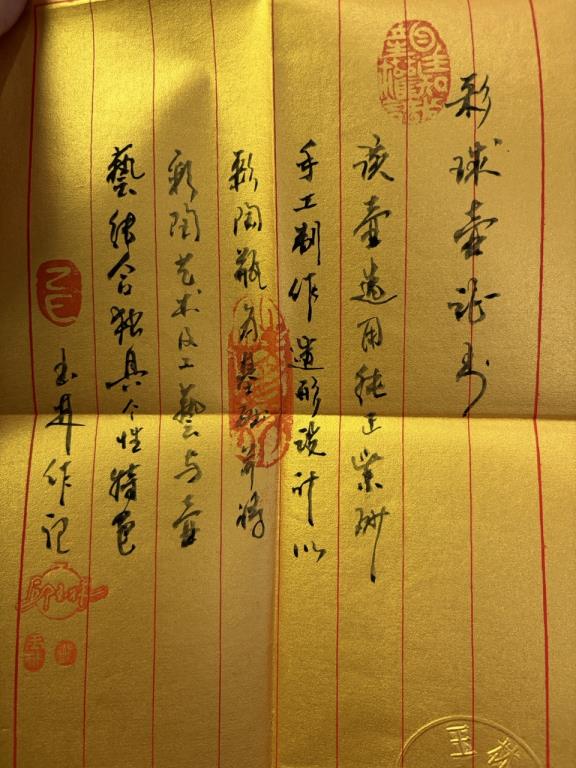 彩球壶证书
该壶选用纯正紫砂
手工制作造形设计以
彩陶瓶为基础并将
彩陶艺术及工藝与壶
藝结合独具个性特色
玉林作记
玉林